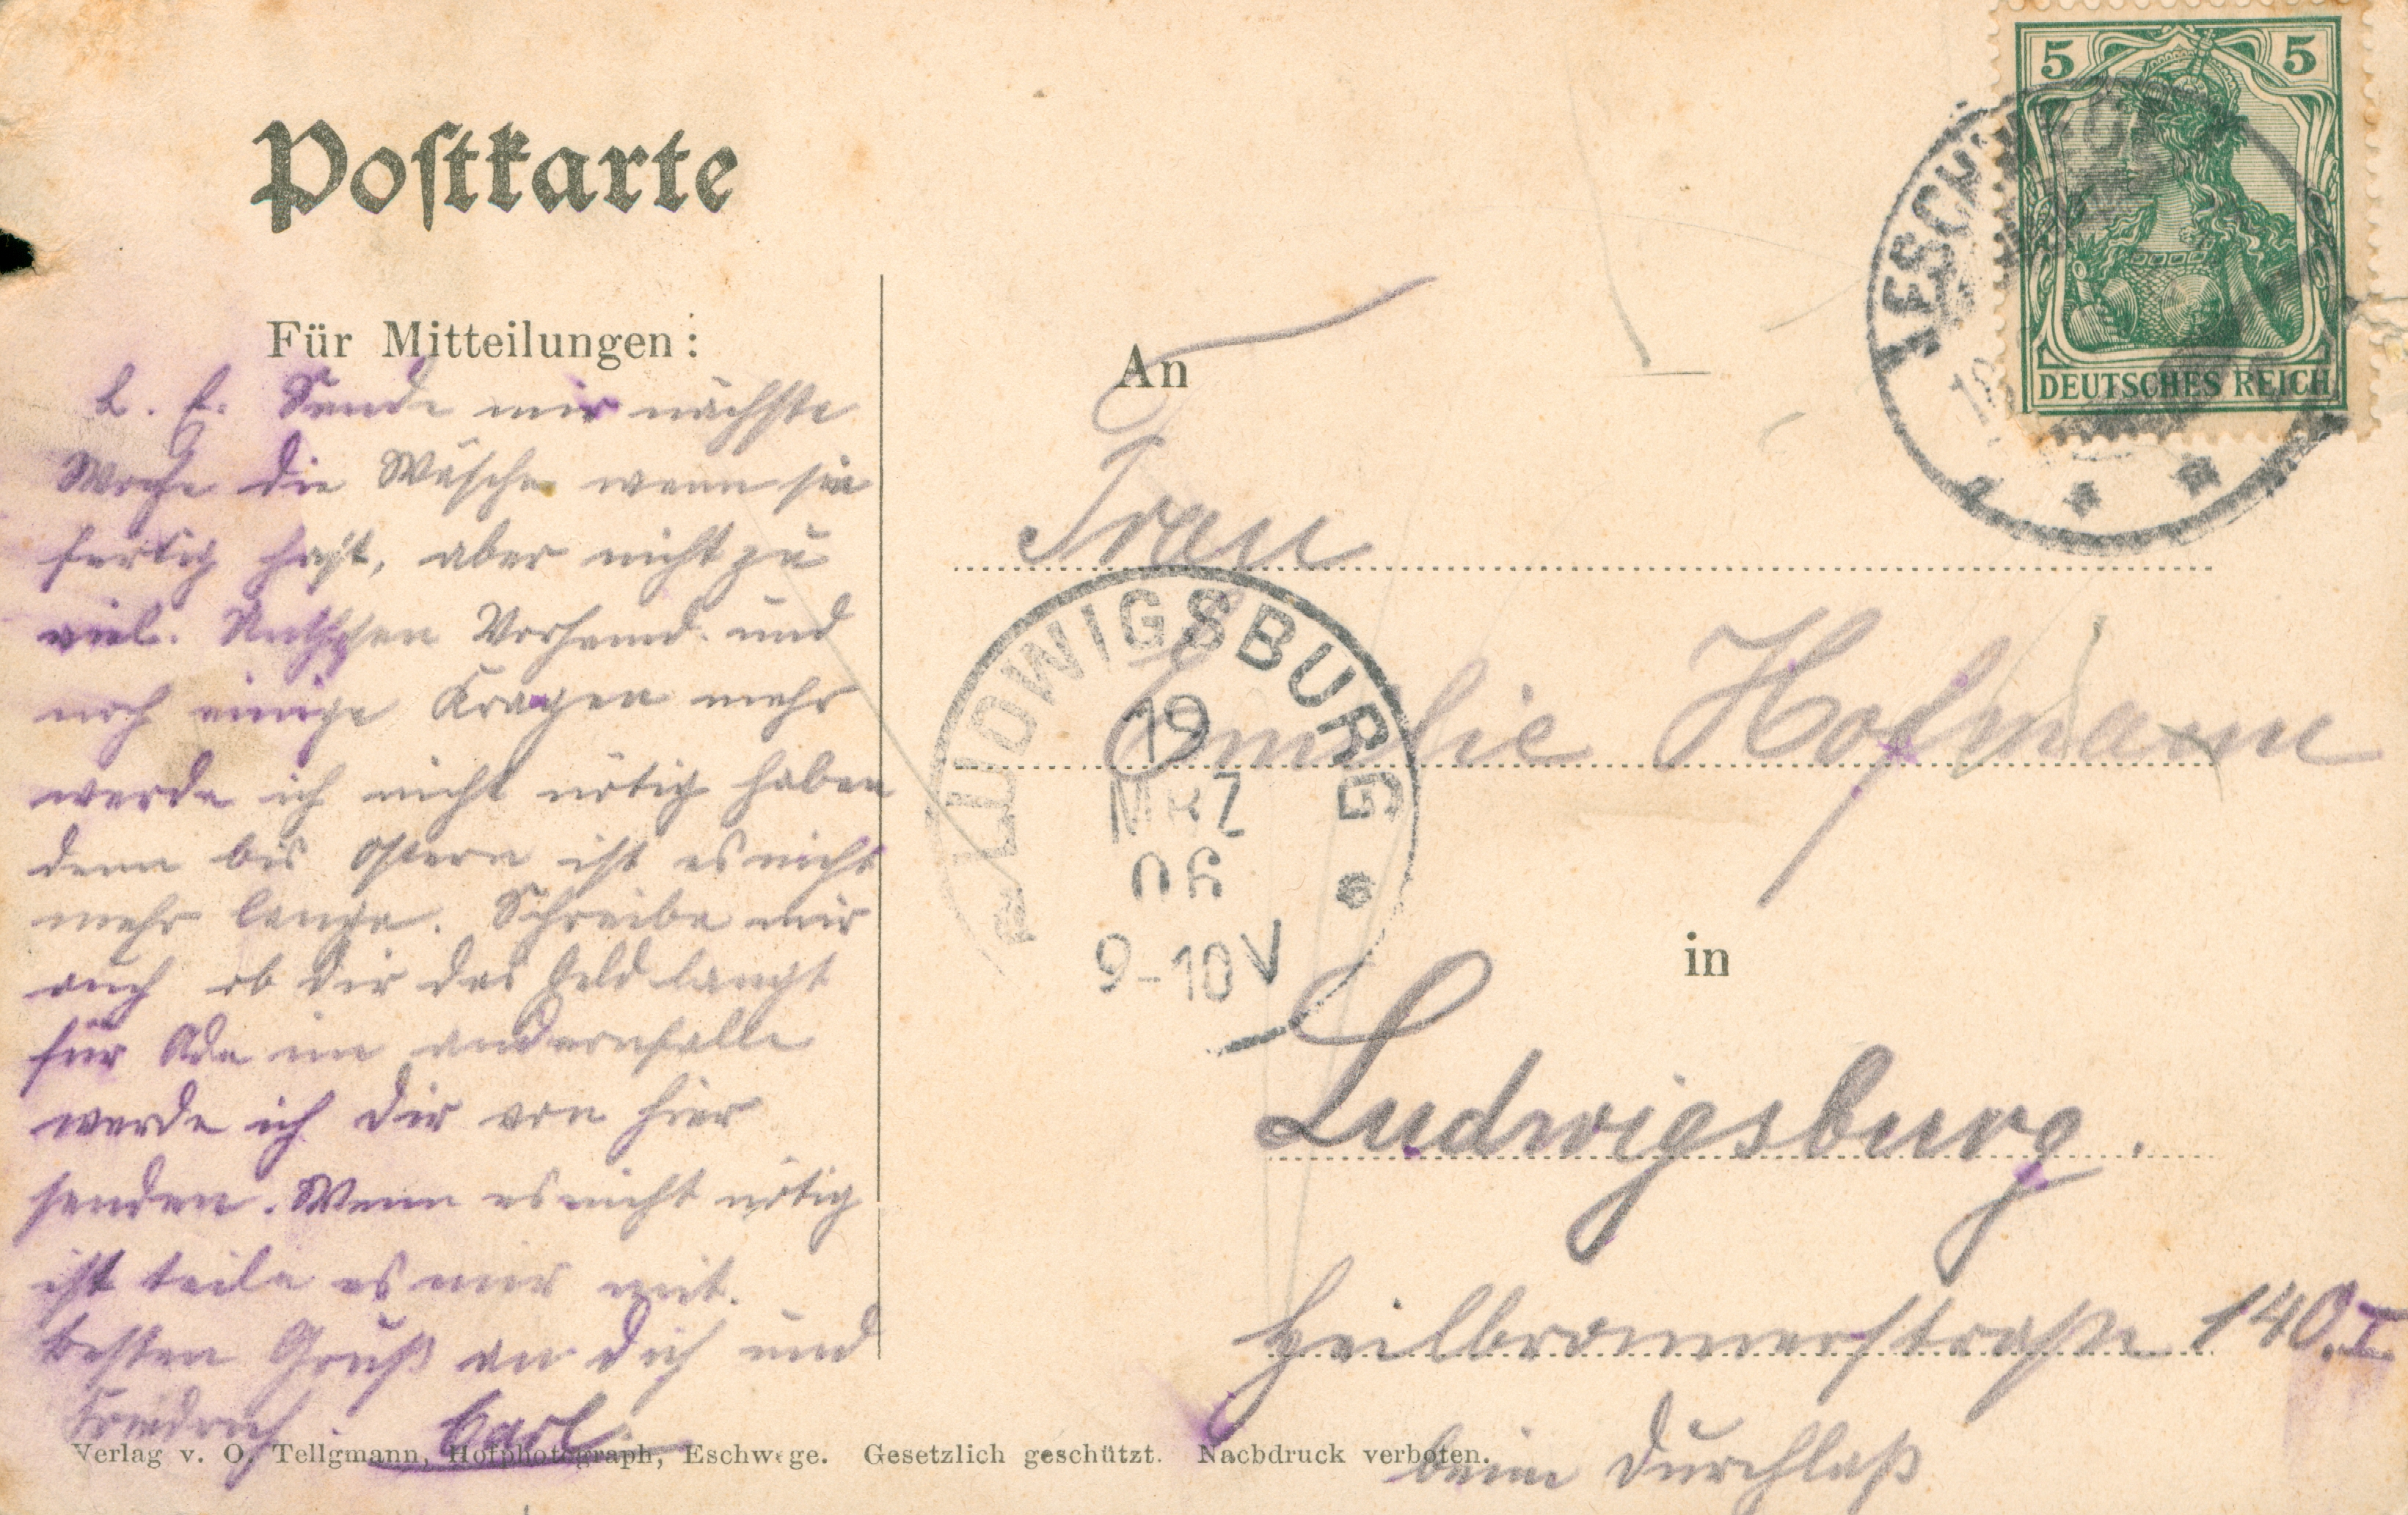 Postkarte
Für Mitteilungen:
L. E. Sende mir nächste
Woche die Wäsche wenn sie
fertig hast, aber nicht zu
viel. Vorhemd und
noch einige Kragen mehr
werde ich nicht nötig haben
denn bis Ostern ist es nicht
mehr lange. Schreibe mir
auch ob dir das Geld langt
für im andernfalle
werde ich dir von hier
senden. Wenn es nicht nötig
ist teile es mir mit.
Besten Gruß an dich und
Friedrich Carl
An
Frau
Emilie Hofmann
in
Ludwigsburg.
Heilbronnerstraße 140.I
beim Durchlaß
5 5
DEUTSCHES REICH
ESCHW
LUDWIGSBURG
19
MRZ
06
9-10V
Verlag v. O. Tellgmann, Hofphotograph, Eschwege. Gesetzlich geschützt. Nachdruck verboten.